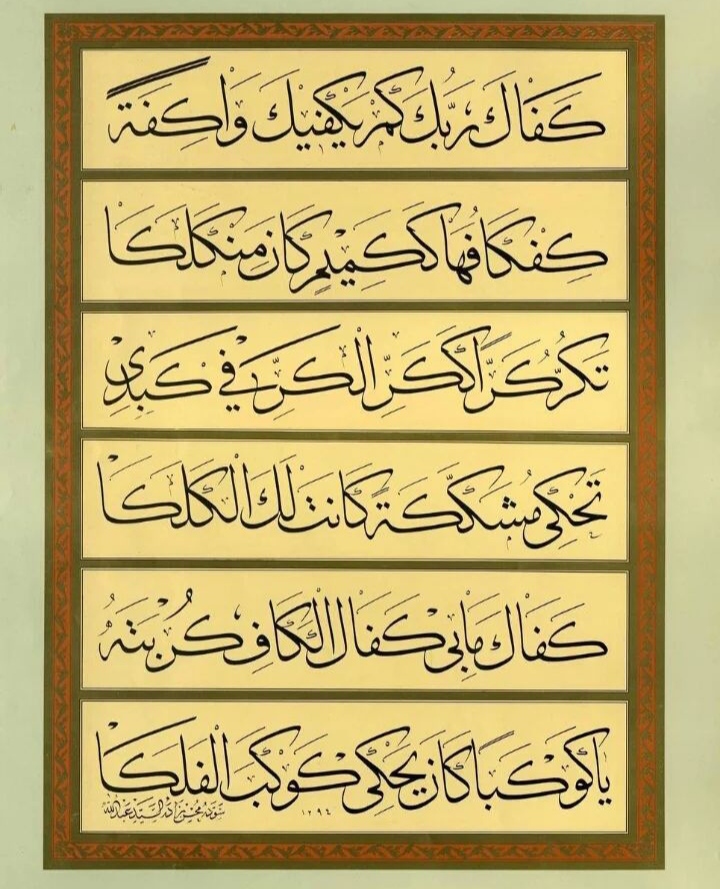 كَفَاكَ رَبُّكَ كَمْ يَكْفِيكَ وَاكِفَةً
كِفْكَافُهَا كَكَمِينٍ كَانَ مِنْ كَلَكَا
تَكُرُّ كَرًّا كَكَرِّ الْكَرِّ فِي كَبَدِي
تَحْكِي مُشَكْشَكَةً كَانَتْ لَكَ الْكَلَكَا
كَفَاكَ مَابِي كَفَاكَ الْكَافِ كُرْبَتَهُ
يَا كَوْكَبًا كَانَ يَحْكِي كَوْكَبَ الْفَلَكَا
١٢٩٤